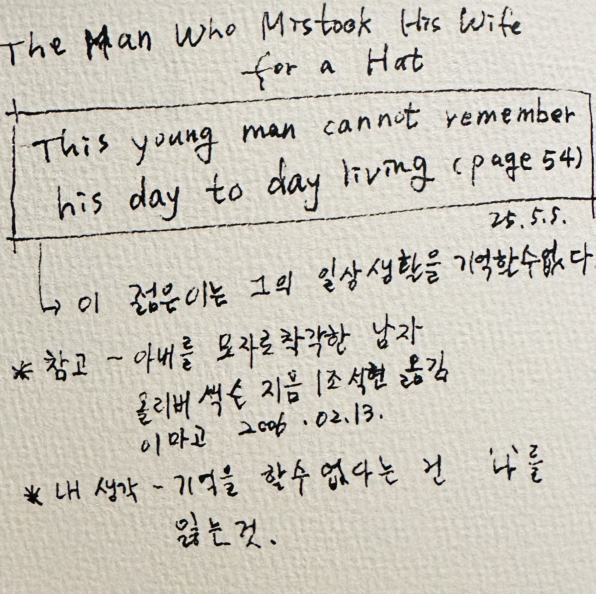 The Man Who Mistook His Wife
for a Hat
This young man cannot remember
his day to day living (page 54)
25.5.5.
이 젊은이는 그의 일상생활을 기억할수없다
* 참고 - 아내를 모자로착각한 남자
올리버 쌕슨 지음 | 조석현 옮김
이마고 2006.02.13.
* 내 생각 - 기억을 할수 없다는 건 '나'를
잃는것.